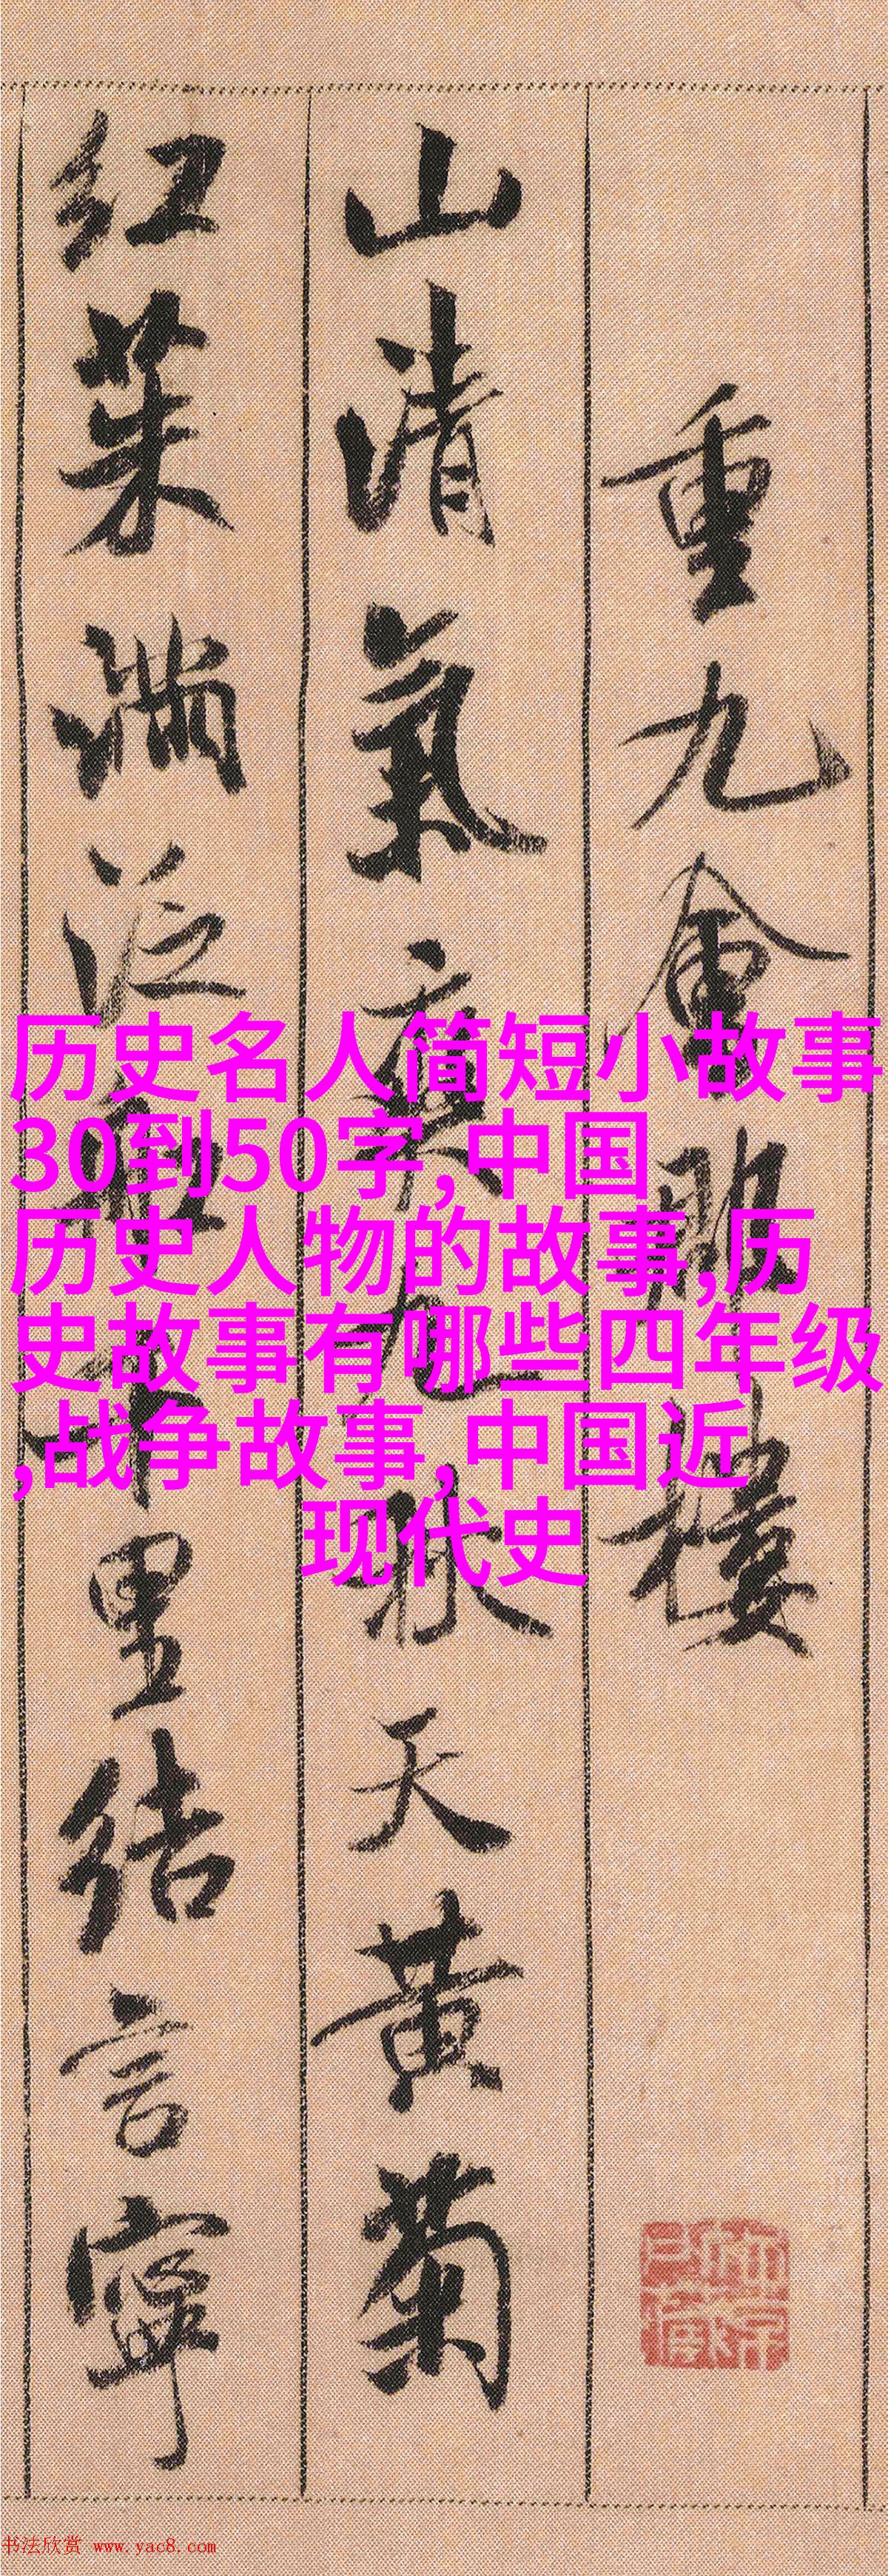 重九會郡樓
山清氣爽九秋天黃菊
紅茱滿泛船千里結言寧
历史名人简短小故事
30到50字,中国
历史人物的故事,历
史故事有哪些四年级
,战争故事,中国近
现代史
书法欣赏 www.yac8.com